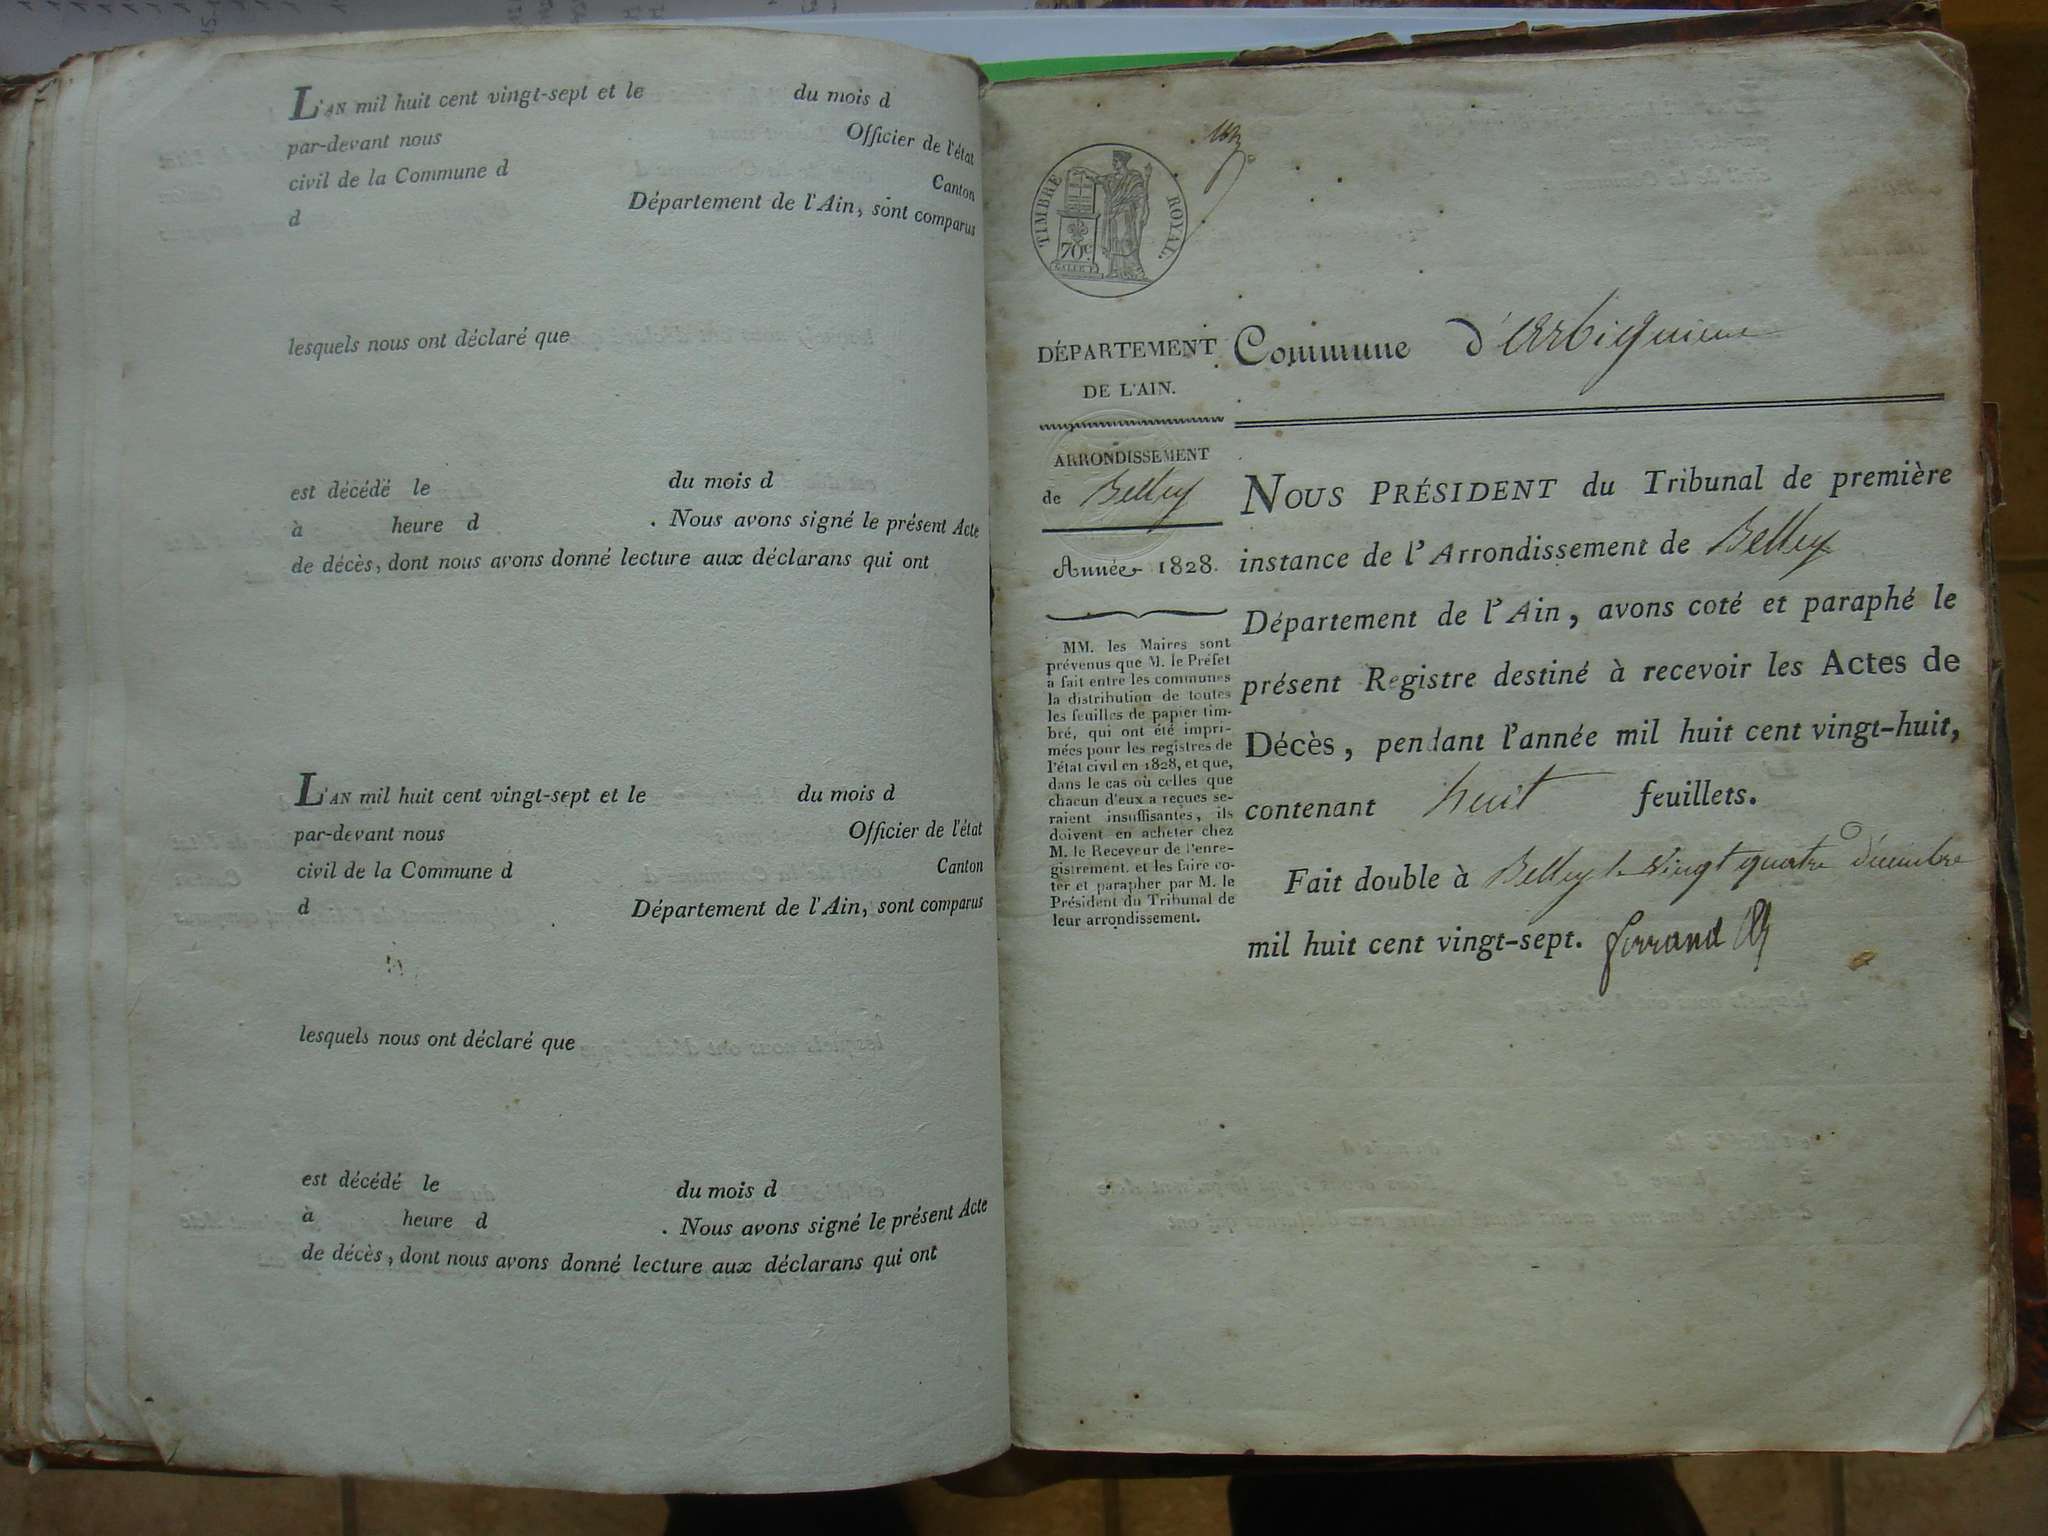 L'AN mil huit cent vingt-sept et le du mois d
par-devant nous Officier de l'état
civil de la Commune d Canton
d Département de l'Ain, sont comparus
lesquels nous ont déclaré que
est décédé le du mois d
à heure d . Nous avons signé le présent Acte
de décès, dont nous avons donné lecture aux déclarans qui ont
L'AN mil huit cent vingt-sept et le du mois d
par-devant nous Officier de l'état
civil de la Commune d Canton
d Département de l'Ain, sont comparus
lesquels nous ont déclaré que
est décédé le du mois d
à heure d . Nous avons signé le présent Acte
de décès, dont nous avons donné lecture aux déclarans qui ont
TIMBRE ROYAL.
70c
DÉPARTEMENT
DE L'AIN.
ARRONDISSEMENT
de Belley
Année 1828.
MM. les Maires sont
prévenus que M. le Préfet
a fait entre les communes
la distribution de toutes
les feuilles de papier tim-
bré, qui ont été impri-
mées pour les registres de
l'état civil en 1828, et que,
dans le cas où celles que
chacun d'eux a reçues se-
raient insuffisantes, ils
doivent en acheter chez
M. le Receveur de l'enre-
gistrement, et les faire co-
ter et parapher par M. le
Président du Tribunal de
leur arrondissement.
Commune d'Arbignieu
NOUS PRÉSIDENT du Tribunal de première
instance de l'Arrondissement de Belley
Département de l'Ain, avons coté et paraphé le
présent Registre destiné à recevoir les Actes de
Décès, pendant l'année mil huit cent vingt-huit,
contenant huit feuillets.
Fait double à Belley le vingt quatre décembre
mil huit cent vingt-sept. ferrand